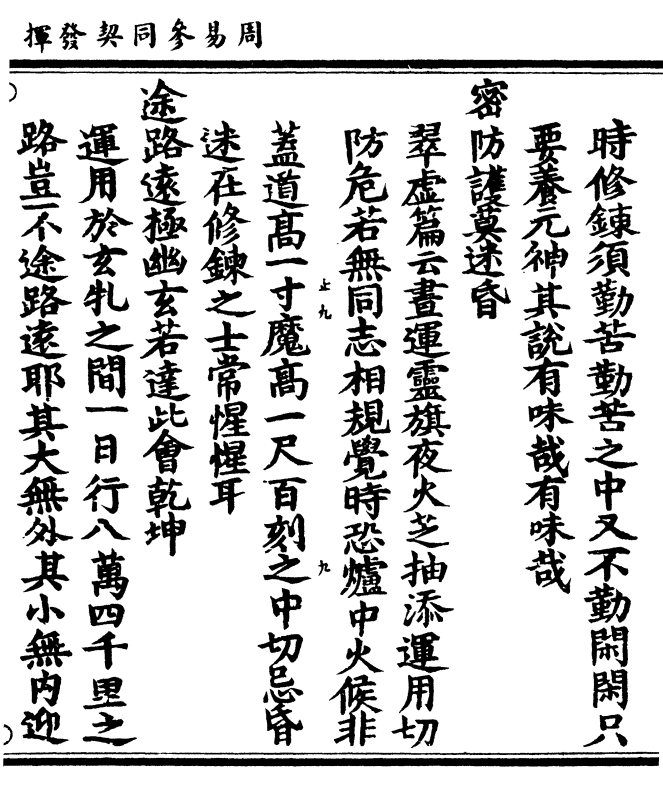 周易參同契發揮
時修鍊須勤苦勤苦之中又不勤閑閑只
要養元神其說有味哉有味哉
密防護莫迷昏
翠虛篇云晝運靈旗夜火芝抽添運用切
防危若無同志相規覺時恐爐中火候非
蓋道高一寸魔高一尺百刻之中切忌昏
迷在修鍊之士常惺惺耳
途路遠極幽玄若達此會乾坤
運用於玄牝之間一日行八萬四千里之
路豈不途路遠耶其大無外其小無内迎